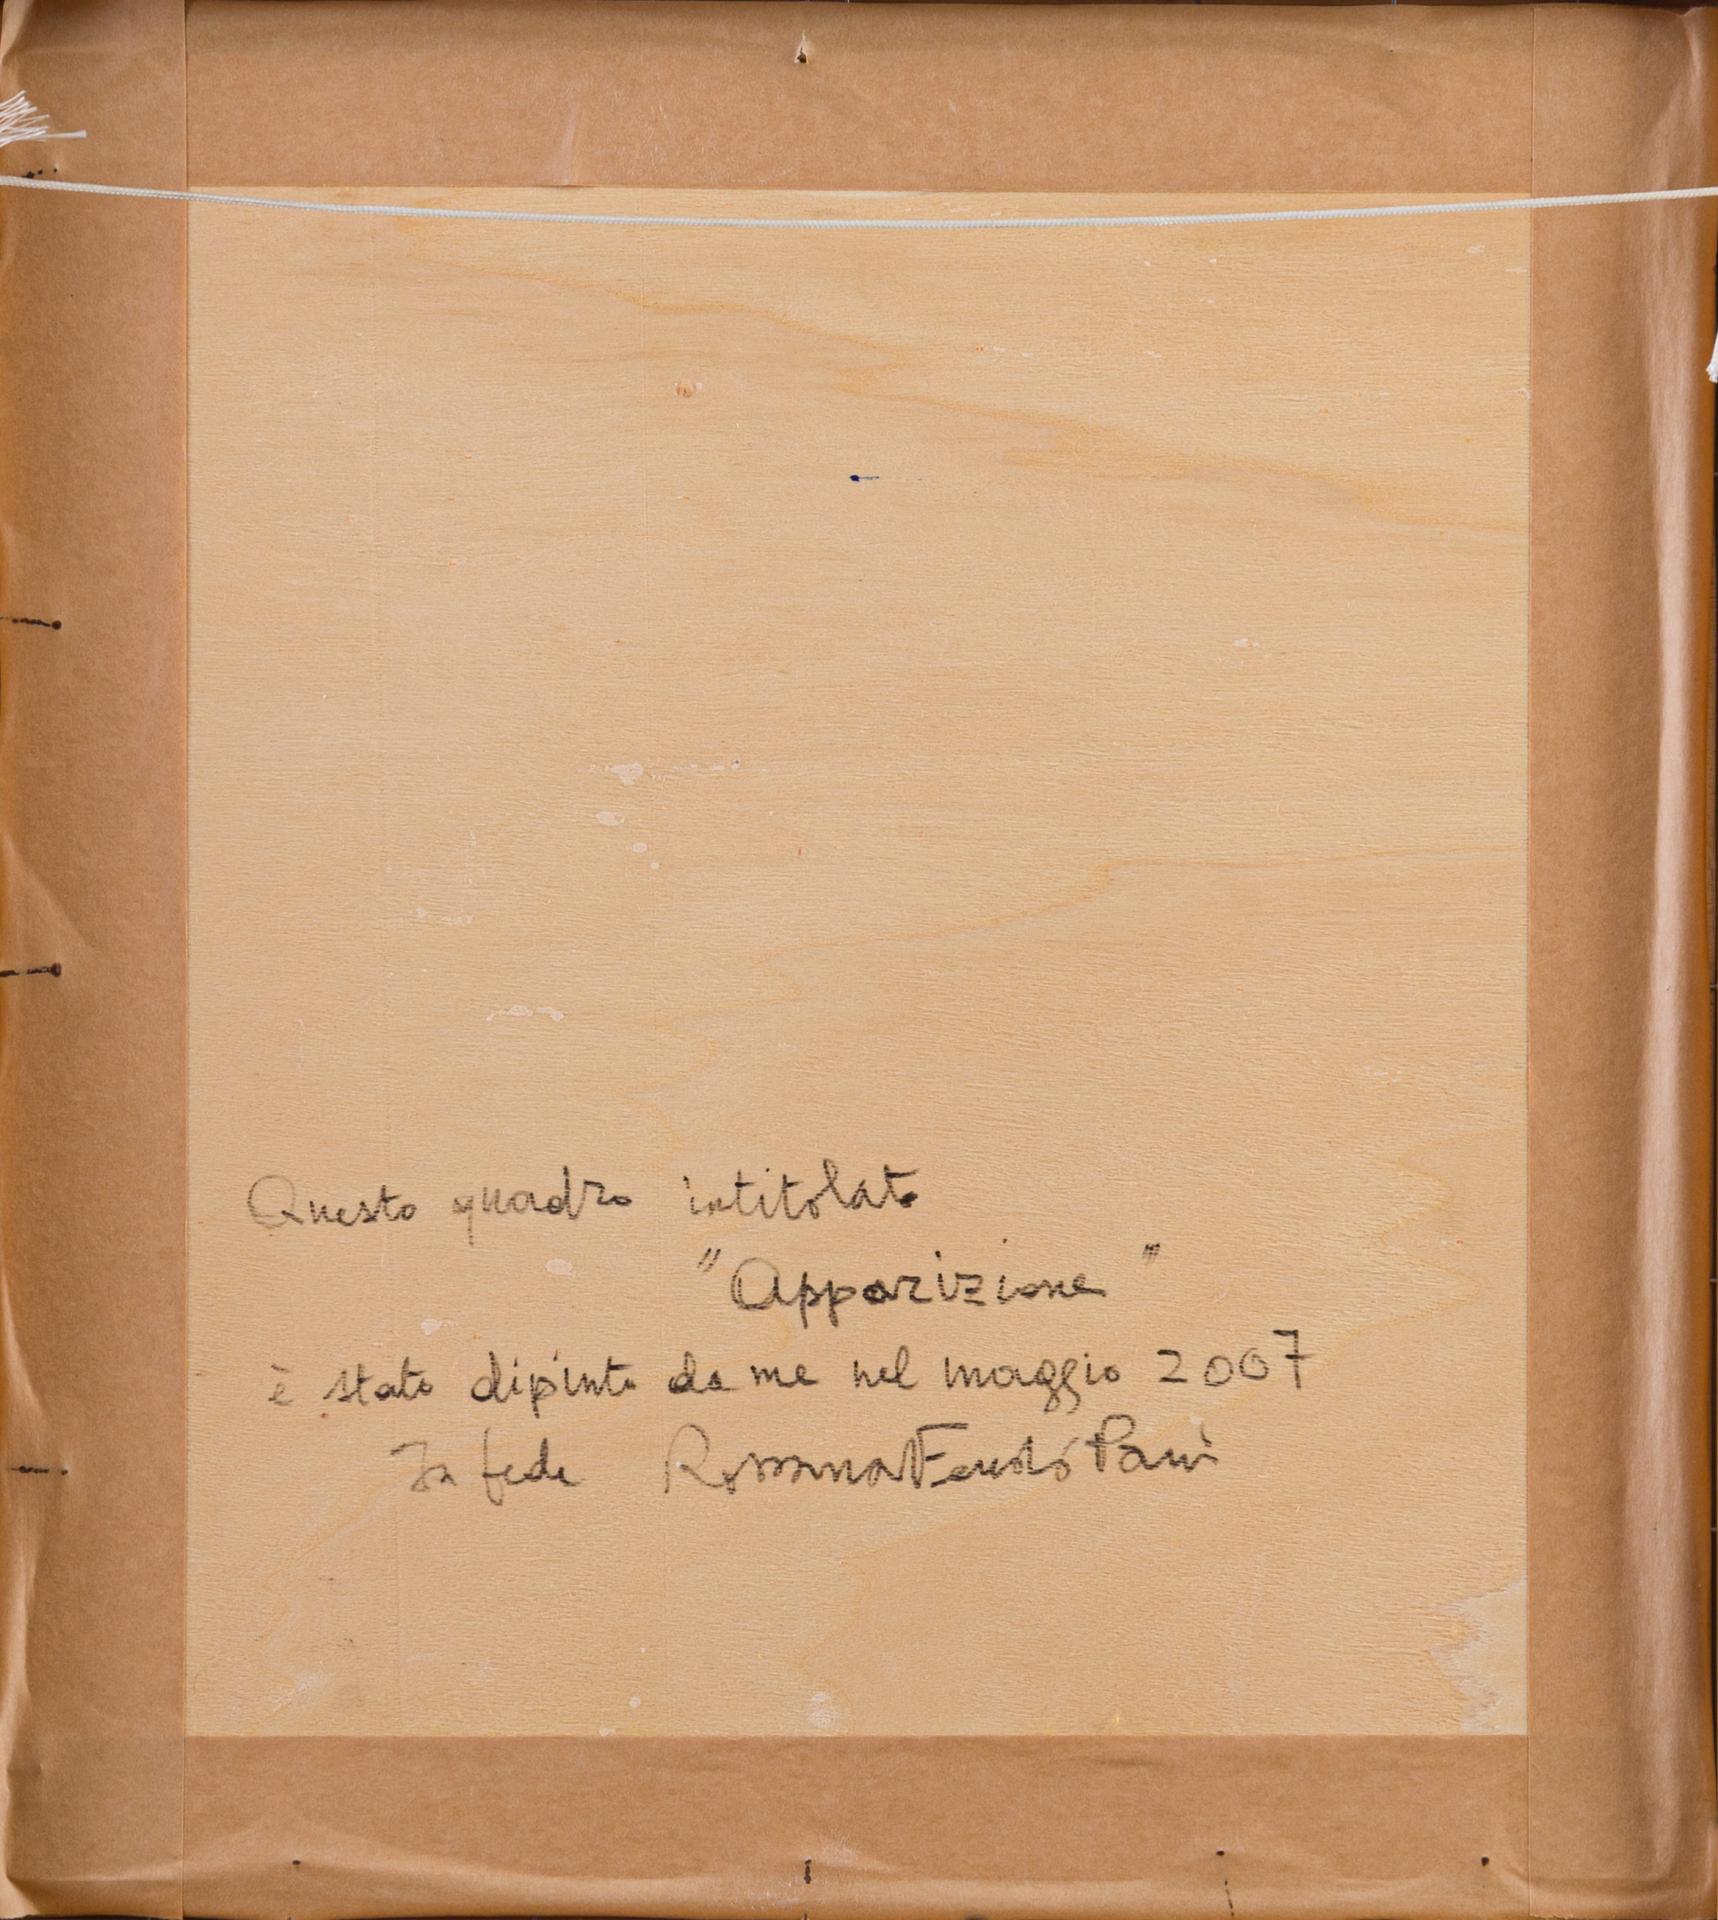 Questo quadro intitolato
"Apparizione"
è stato dipinto da me nel maggio 2007
In fede Rossana Feudo Pani